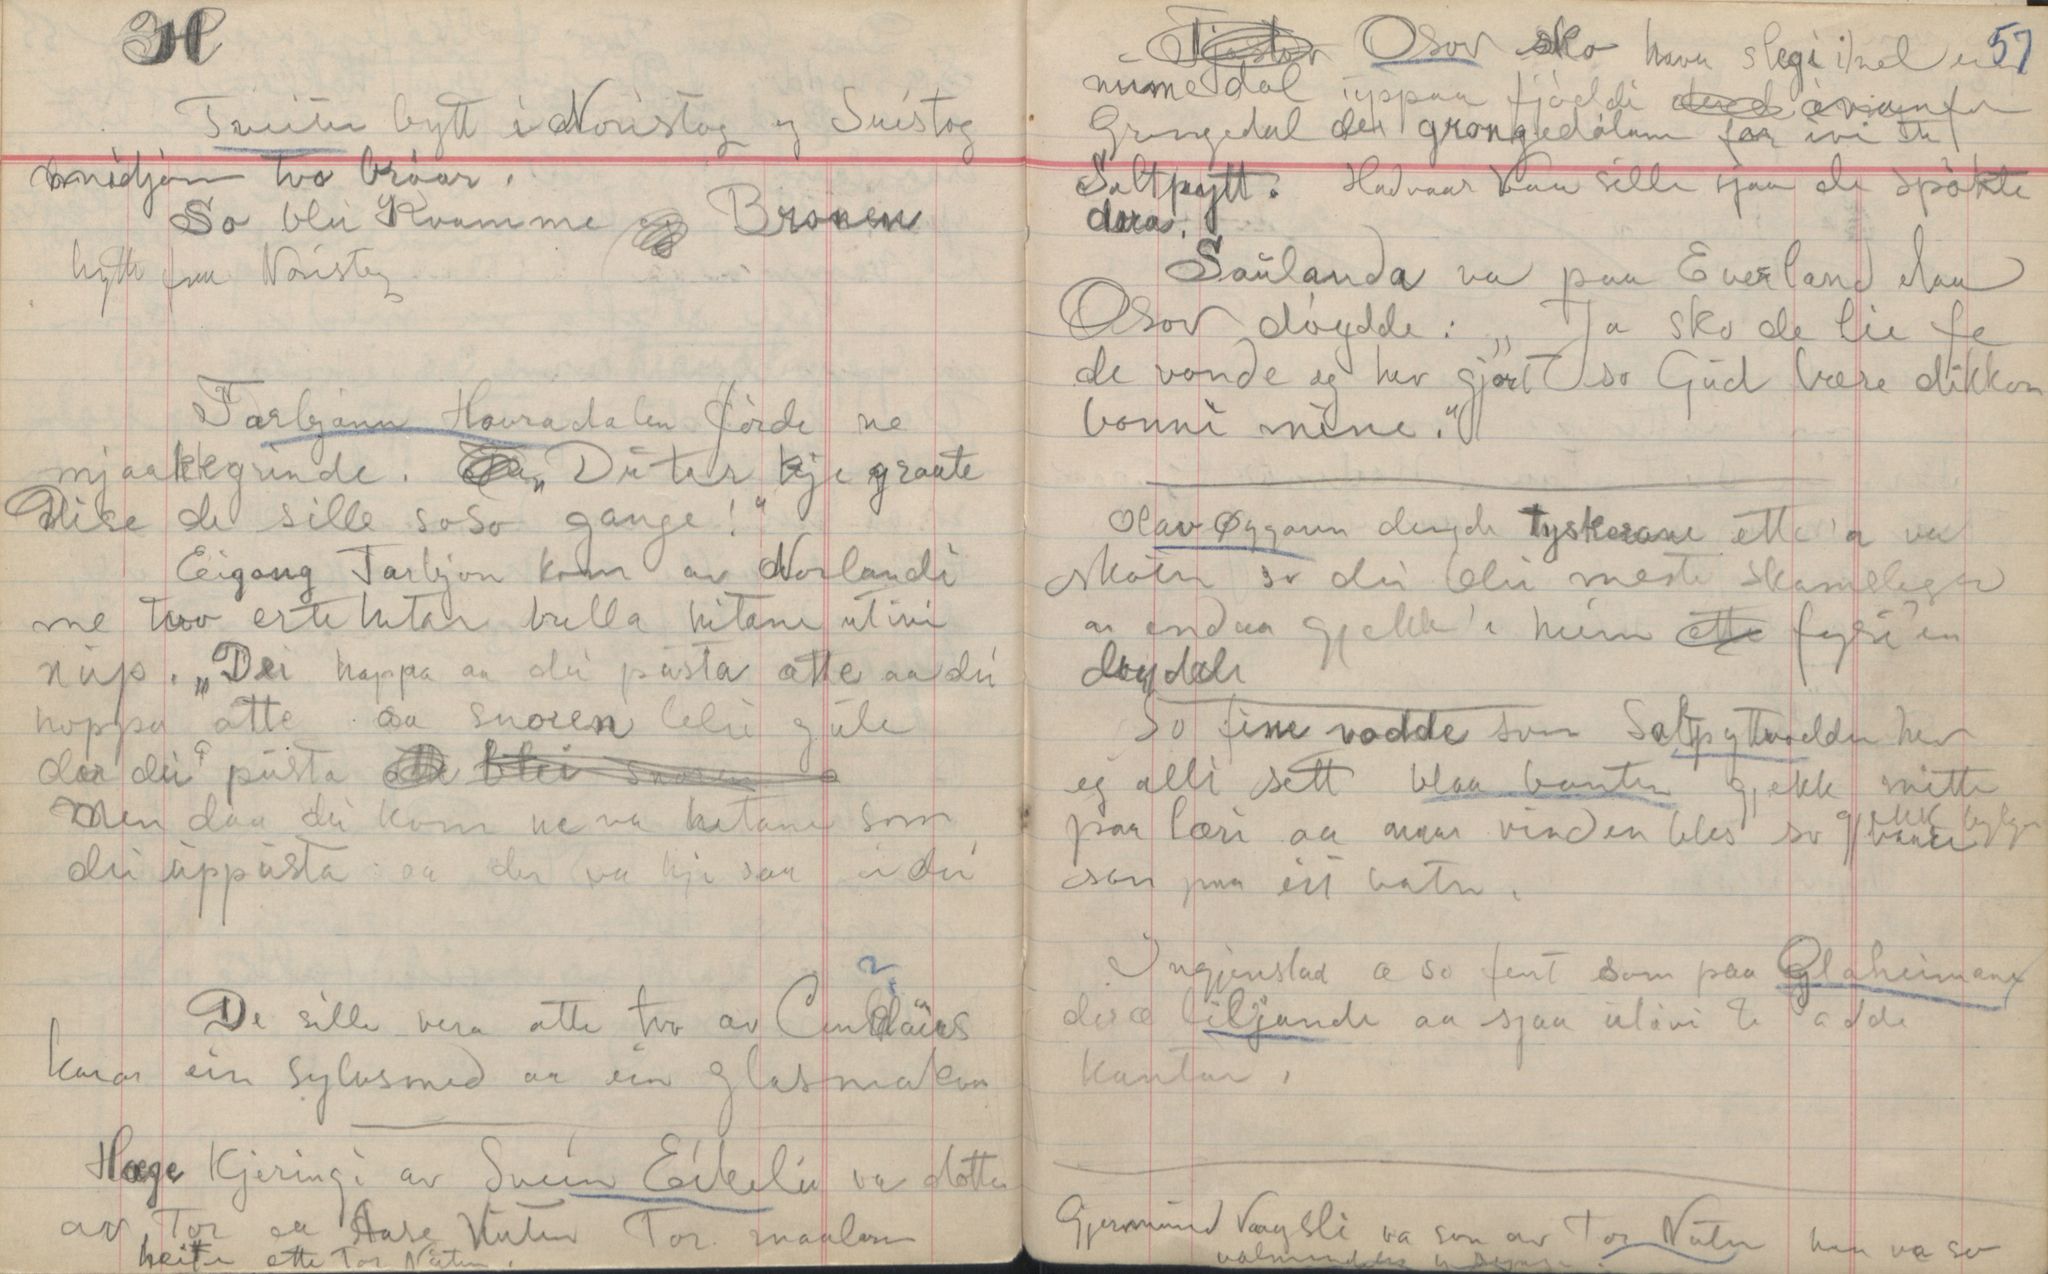 Tveiten bytt i Noristog og Suistog
midjom tvo brøar.
So blei Kvamme Broien
bytt fraa Noristog
Tarbjønn Havradalen förde ne
mjaakkgrinde. "Du tar kje graate
Dise de sille soso gange!"
Eigong Tarbjøn kom av Norlandi
me tvo erte hitar bulla hitane utivi
nup. "Dei hoppa aa dei pusta atte aa dei
hoppa atte aa snoren blei gule
daa dei pusta
Men daa dei kom ne va hitane som
dei uppusta aa der va kje saa i dei
De sille vera atte tvo av
karar ein sylvsmed aa ein glasmakar
Hæge Kjeringi av Svein Eikelii va dotter
av Tor aa Aase Nuten Tor
heite ette Tor Nuten.
57
Osov sko hava slegi ihel ein
numedal uppaa fjøddi
Grungedal der grongedølum far ivi te
Saltpytt. Hadvaar sille sjaa de spökte
dara.
Saulanda va paa Everland daa
Osov döydde: "Ja sko de lie fe
de vonde eg hev gjort so Gud bære dikkan
bonni mine."
Olav Øygarn dengde tyskerane ette 'n va
skoten so dei blei meste skamslegne
aa endaa gjekk 'n heim fyri 'en
döydde
So fine vodde som Saltpyttvodden hev
eg alli sett blaa banten gjekk mitte
paa læri aa naar vinden bles so gjekk bylgjur
son paa eit vatn.
Ingjenstad æ so fent som paa Glaheimane
der æ liljande aa sjaa utivi te adde
kantar.
Gjermund Vaagsli va son av Tor Nuten han va so